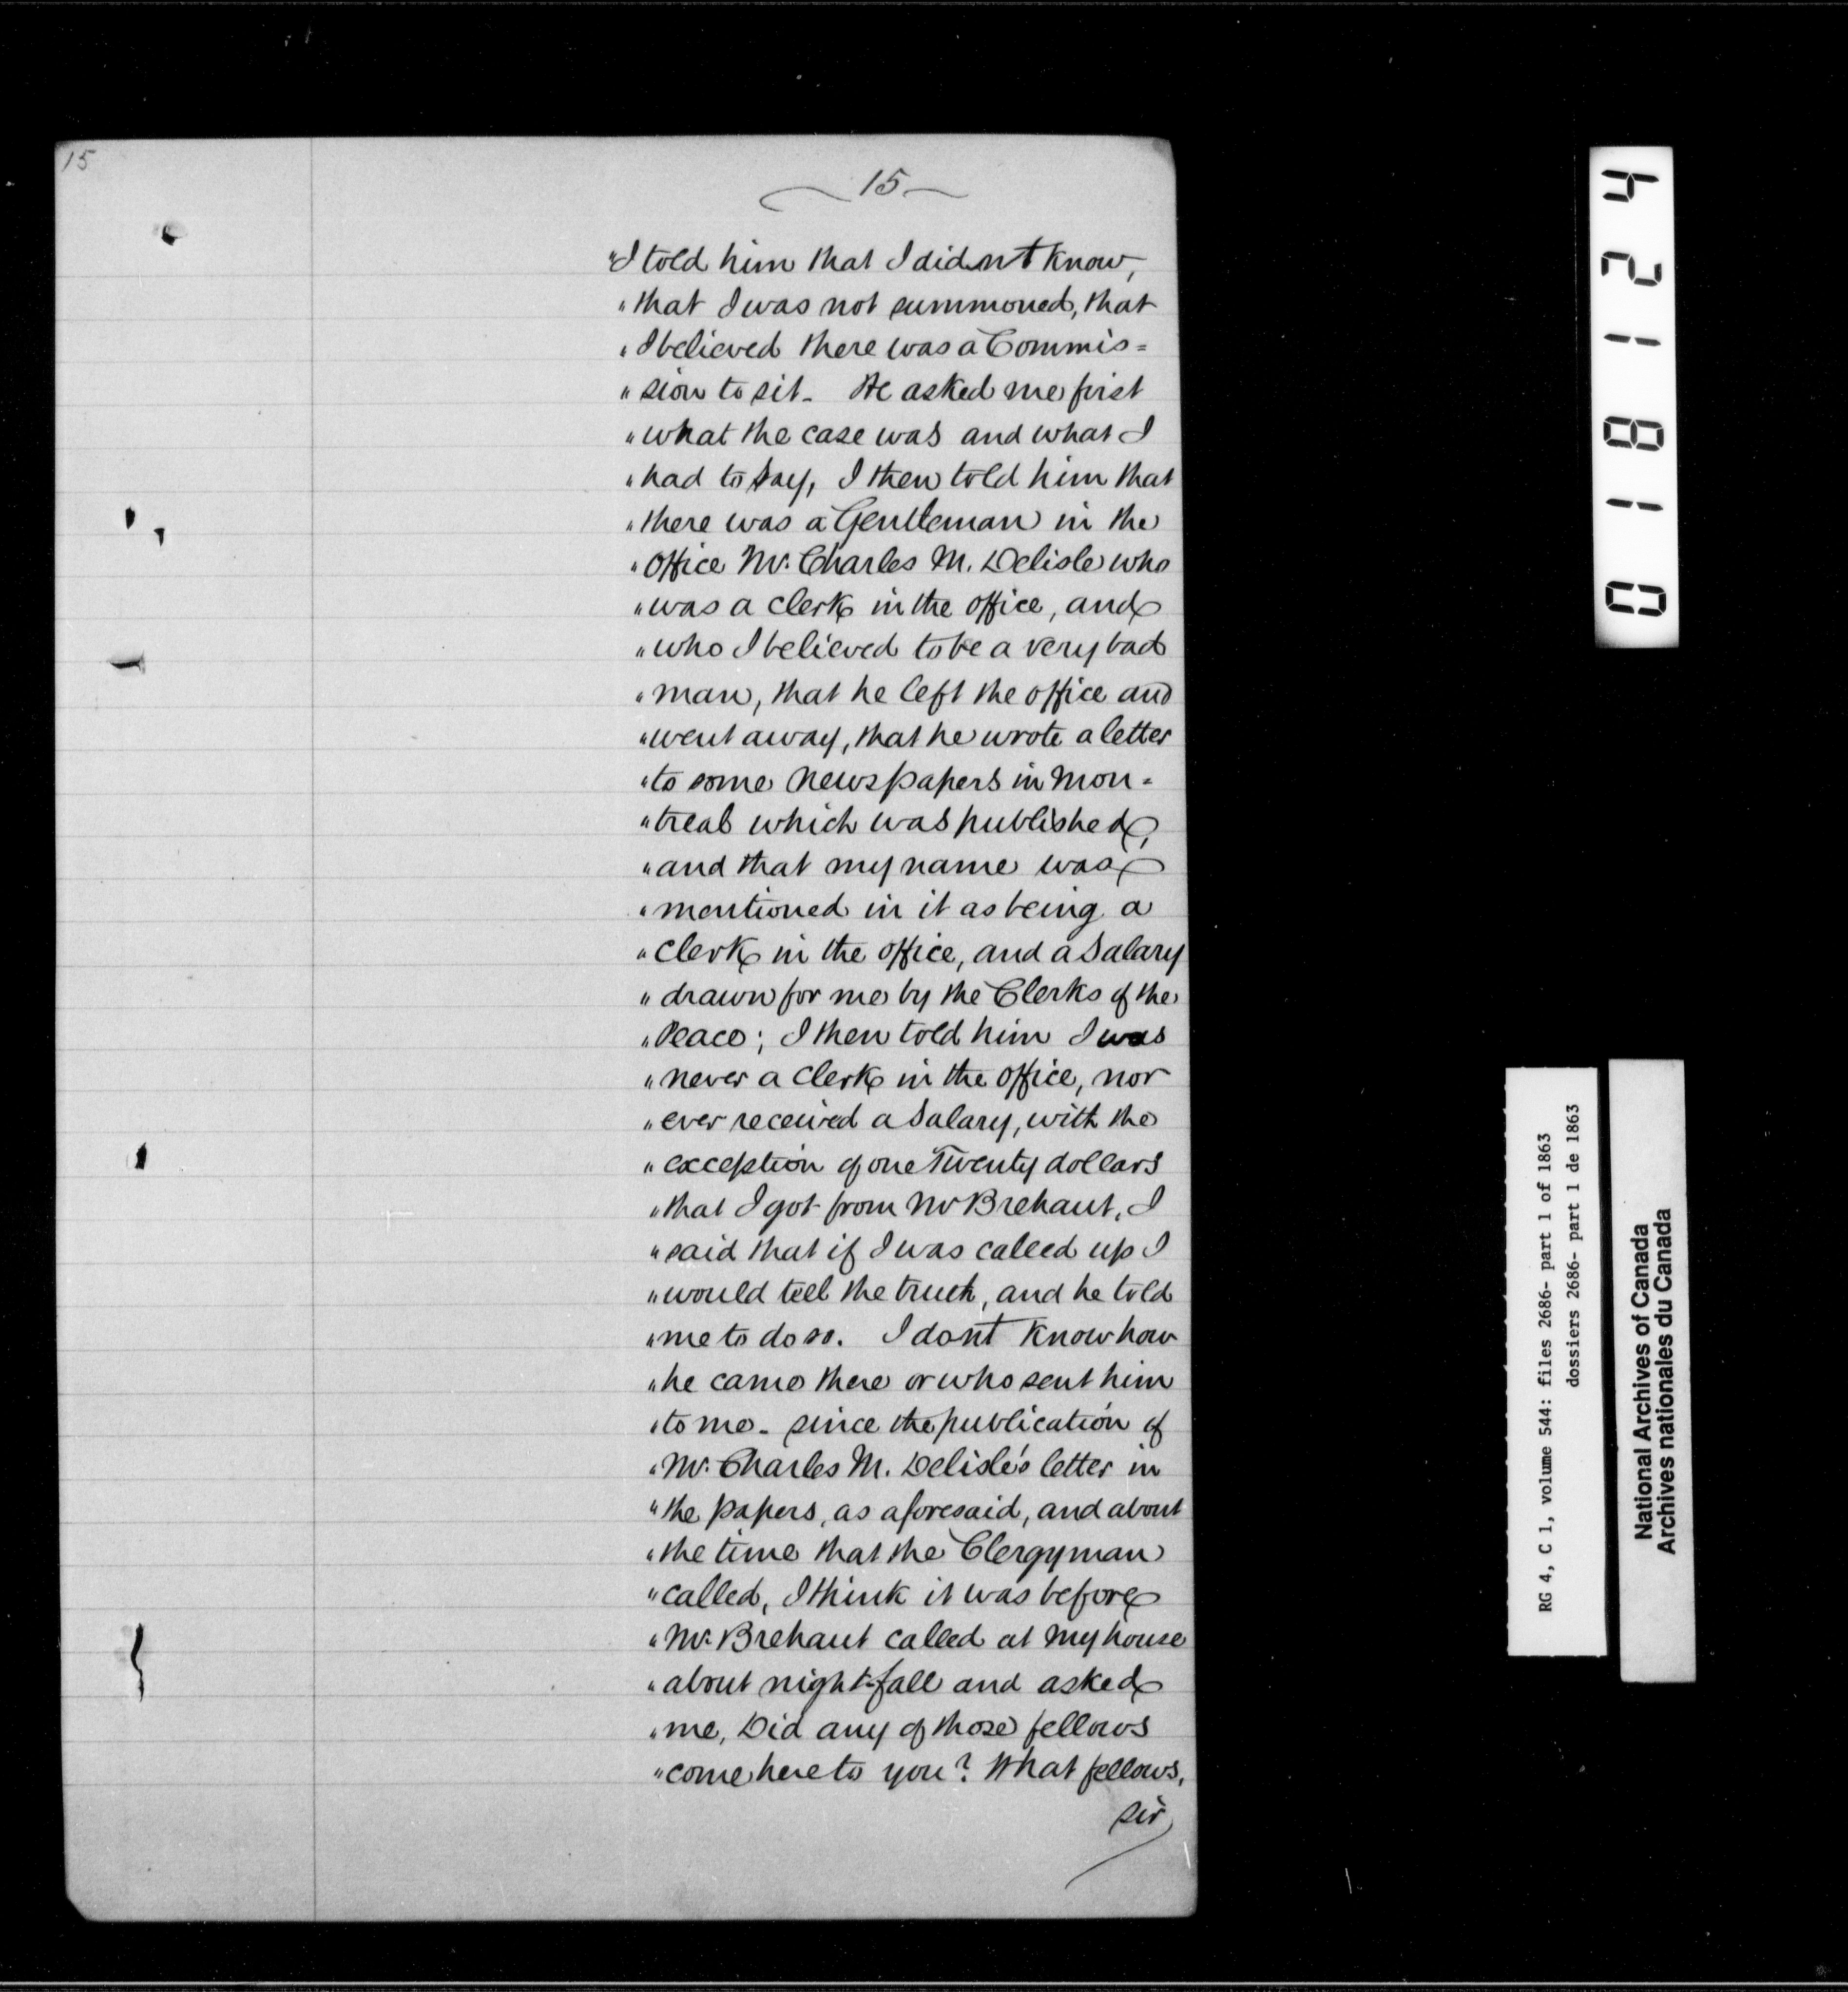 15
15
"I told him that I didn't know,
" that I was not summoned, that
" I believed there was a Commis=
" sion to sit. He asked me first
" what the case was and what I
" had to say, I then told him that
" there was a Gentleman in the
" Office Mr. Charles M. Delisle who
" was a clerk in the office, and
" who I believed to be a very bad
" man, that he left the office and
" went away, that he wrote a letter
" to some newspapers in Mon=
" treal which was published,
" and that my name was
" mentioned in it as being a
" clerk in the office, and a Salary
" drawn for me by the Clerks of the
" Peace; I then told him I was
" never a clerk in the office, nor
" ever received a Salary, with the
" exception of one Twenty dollars
" that I got from Mr Brehaut, I
" said that if I was called up I
" would tell the truth, and he told
" me to do so. I don't know how
" he came there or who sent him
" to me. since the publication of
" Mr. Charles M. Delisle's letter in
" the papers, as aforesaid, and about
" the time that the Clergyman
" called, I think it was before
" Mr. Brehaut called at my house
" about night-fall and asked
" me, Did any of those fellows
" come here to you? What fellows,
sir
018124
RG 4, C 1, volume 544: files 2686- part 1 of 1863
dossiers 2686- part 1 de 1863
National Archives of Canada
Archives nationales du Canada